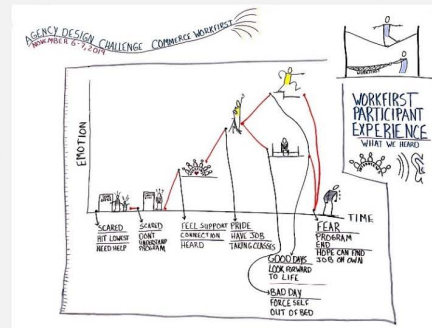 AGENCY DESIGN CHALLENGE COMMERCE WORKFIRST
NOVEMBER 6-7, 2019
WORKFIRST
PARTICIPANT
EXPERIENCE
WHAT WE HEARD
EMOTION
TIME
SCARED
HIT LOWEST
NEED HELP
SCARED
DONT
UNDERSTAND
PROGRAM
FEEL SUPPORT
CONNECTION
HEARD
PRIDE
HAVE JOB
TAKING CLASSES
GOOD DAYS
LOOK FORWARD
TO LIFE
BAD DAY
FORCE SELF
OUT OF BED
FEAR
PROGRAM
END
HOPE CAN FIND
JOB ON OWN